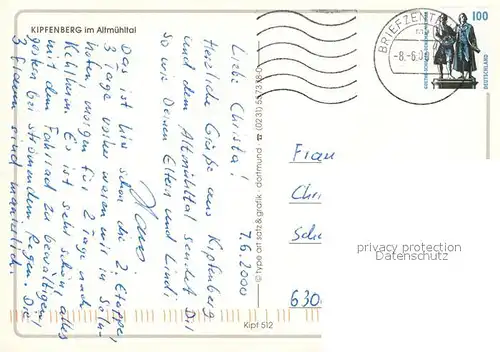 KIPFENBERG im Altmühltal
7.6.2000
Liebe Christa!
Herzliche Grüße aus Kipfenberg
und dem Altmühltal sendet Dir
so wie Deinen Eltern und Lindi
Hans.
Das ist hier schon die 2. Etappe,
3 Tage vorher waren wir in Solnhofen, morgen für 2 Tage nach
Kehlheim. Es ist sehr schön, alles
mit dem Fahrrad zu bewältigen,
gestern bei strömendem Regen. Die
3 sind
© type art satz & grafik · dortmund ☎ (0231)
Kipf 512
BRIEFZENTR
-8.-6.00
100
DEUTSCHLAND
Frau
Chri
Sch
630
privacy protection
Datenschutz